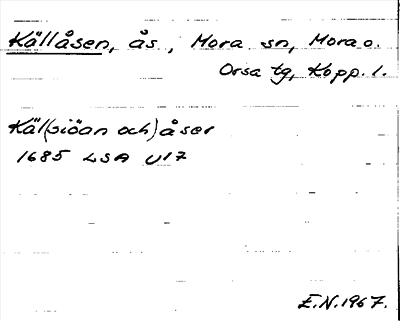 Källåsen, ås, Mora sn, Mora o.
Orsa tg, Kopp. l.
Käl(siöan och) åser
1685 LSA U17
E.N. 1967.